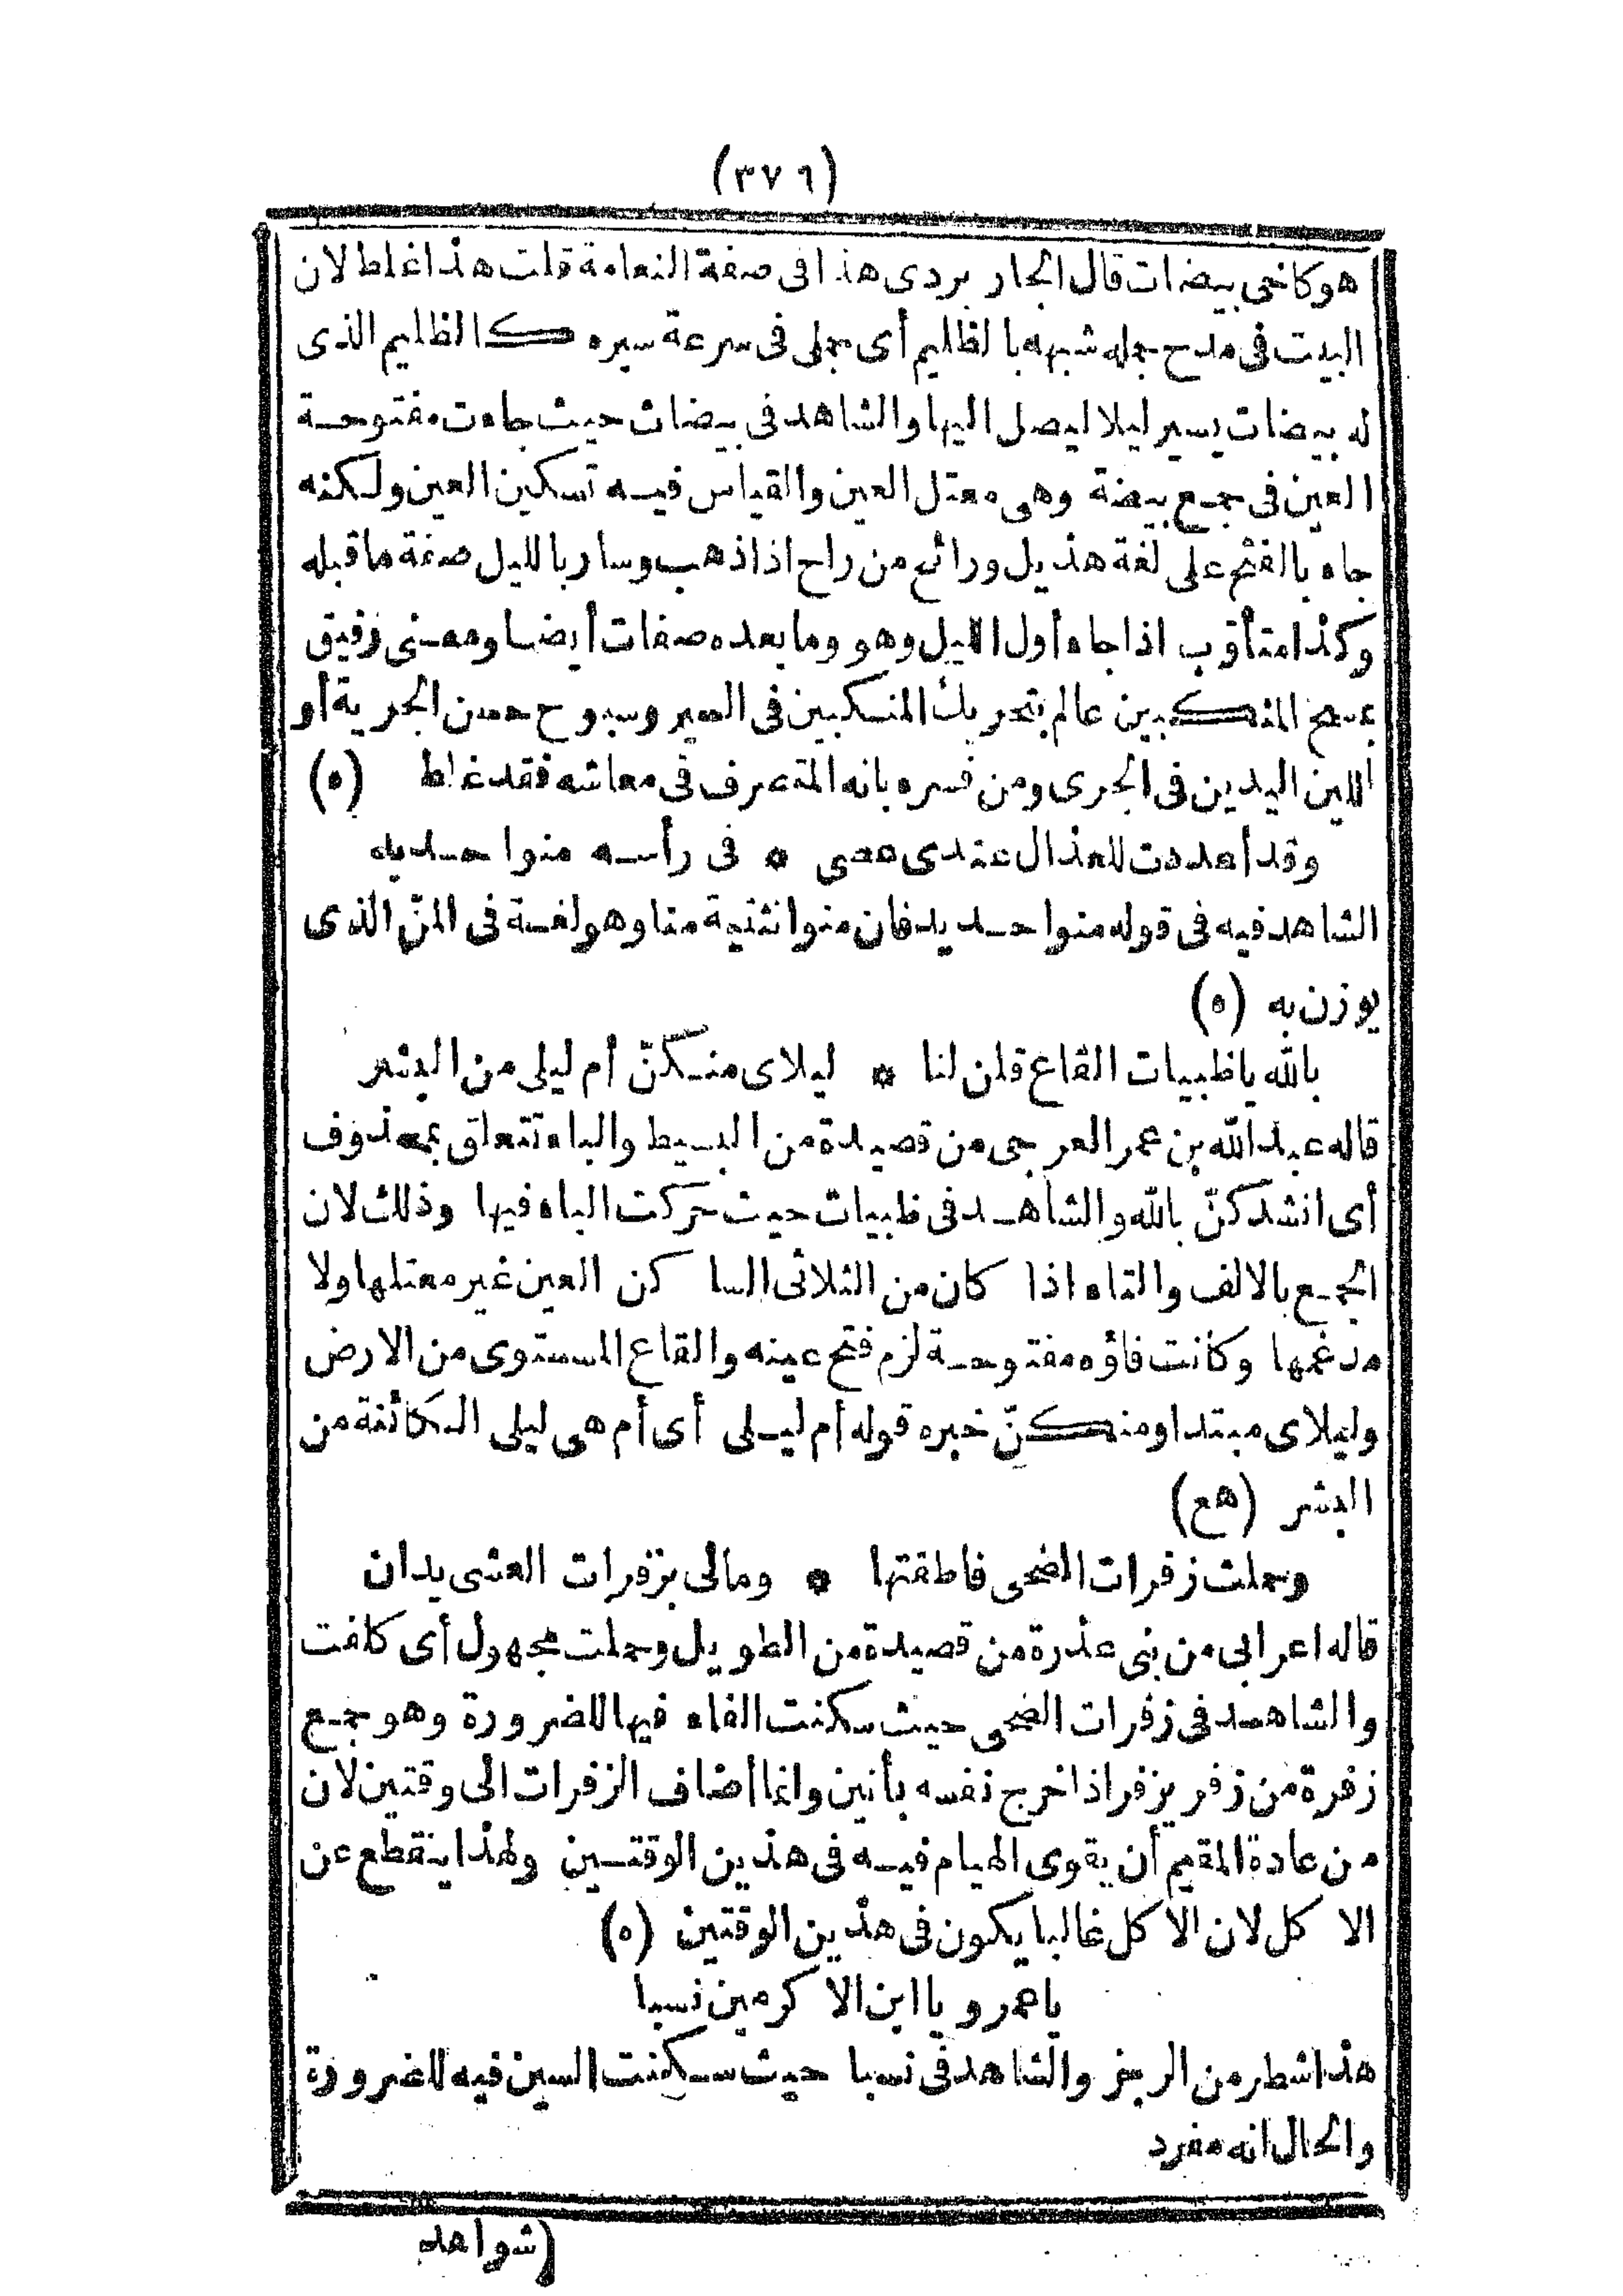 (٣٧٦)
هو كاخى بيضات قال الجار بردى هذا فى صفة النعامة قلت هذا غلط لان
البيت فى مدح جمله شبهه بالظليم أى جملى فى سرعة سيره كالظليم الذى
له بيضات يسير ليلا ليصل اليها والشاهد فى بيضات حيث جاءت مفتوحة
العين فى جمع بيضة وهى معتل العين والقياس فيه تسكين العين ولكنه
جاء بالفتح على لغة هذيل ورائح من راح اذا ذهب وسار بالليل صفة ما قبله
وكذا متأوّب اذا جاء أول الليل وهو وما بعده صفات أيضا ومعنى رفيق
بمسح المنكبين عالم بتحريك المنكبين فى السير وسبوح حسن الجرية أو
اللين اليدين فى الجرى ومن فسره بانه المتصرف فى معاشه فقد غلط (ه)
وقد أعددت للعذال عندى عصى * فى رأسه منوا حديد
الشاهد فيه فى قوله منوا حديد فان منوا تثنية منا وهو لغة فى المنّ الذى
يوزن به (ه)
بالله يا ظبيات القاع قلن لنا * ليلاى منكنّ أم ليلى من البشر
قاله عبد الله بن عمر العرجى من قصيدة من البسيط والباء تتعلق بمحذوف
أى انشدكنّ بالله والشاهد فى ظبيات حيث حركت الباء فيها وذلك لان
الجمع بالالف والتاء اذا كان من الثلاثى الساكن العين غير معتلها ولا
مدغمها وكانت فاؤه مفتوحة لزم فتح عينه والقاع المستوى من الارض
وليلاى مبتدا ومنكنّ خبره قوله أم ليلى أى أم هى ليلى الكائنة من
البشر (هع)
وحملت زفرات الضحى فاطقتها * ومالى بزفرات العشى يدان
قاله اعرابى من بنى عذرة من قصيدة من الطويل وحملت مجهول أى كلفت
والشاهد فى زفرات الضحى حيث سكنت الفاء فيها للضرورة وهو جمع
زفرة من زفر يزفر اذا خرج نفسه بأنين وانما أضاف الزفرات الى وقتين لان
من عادة المقيم أن يقوى الهيام فيه فى هذين الوقتين ولهذا ينقطع عن
الاكل لان الاكل غالبا يكون فى هذين الوقتين (ه)
يا عمرو يا ابن الاكرمين نسبا
هذا شطر من الرجز والشاهد فى نسبا حيث سكنت السين فيه للضرورة
والحال انه مفرد
(شواهد